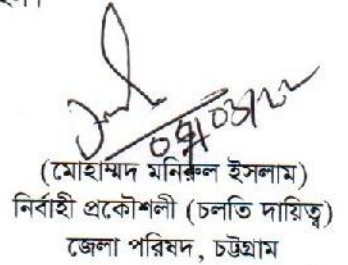 ০৭/০৩/২২
(মোহাম্মদ মনিরুল ইসলাম)
নির্বাহী প্রকৌশলী (চলতি দায়িত্ব)
জেলা পরিষদ, চট্টগ্রাম